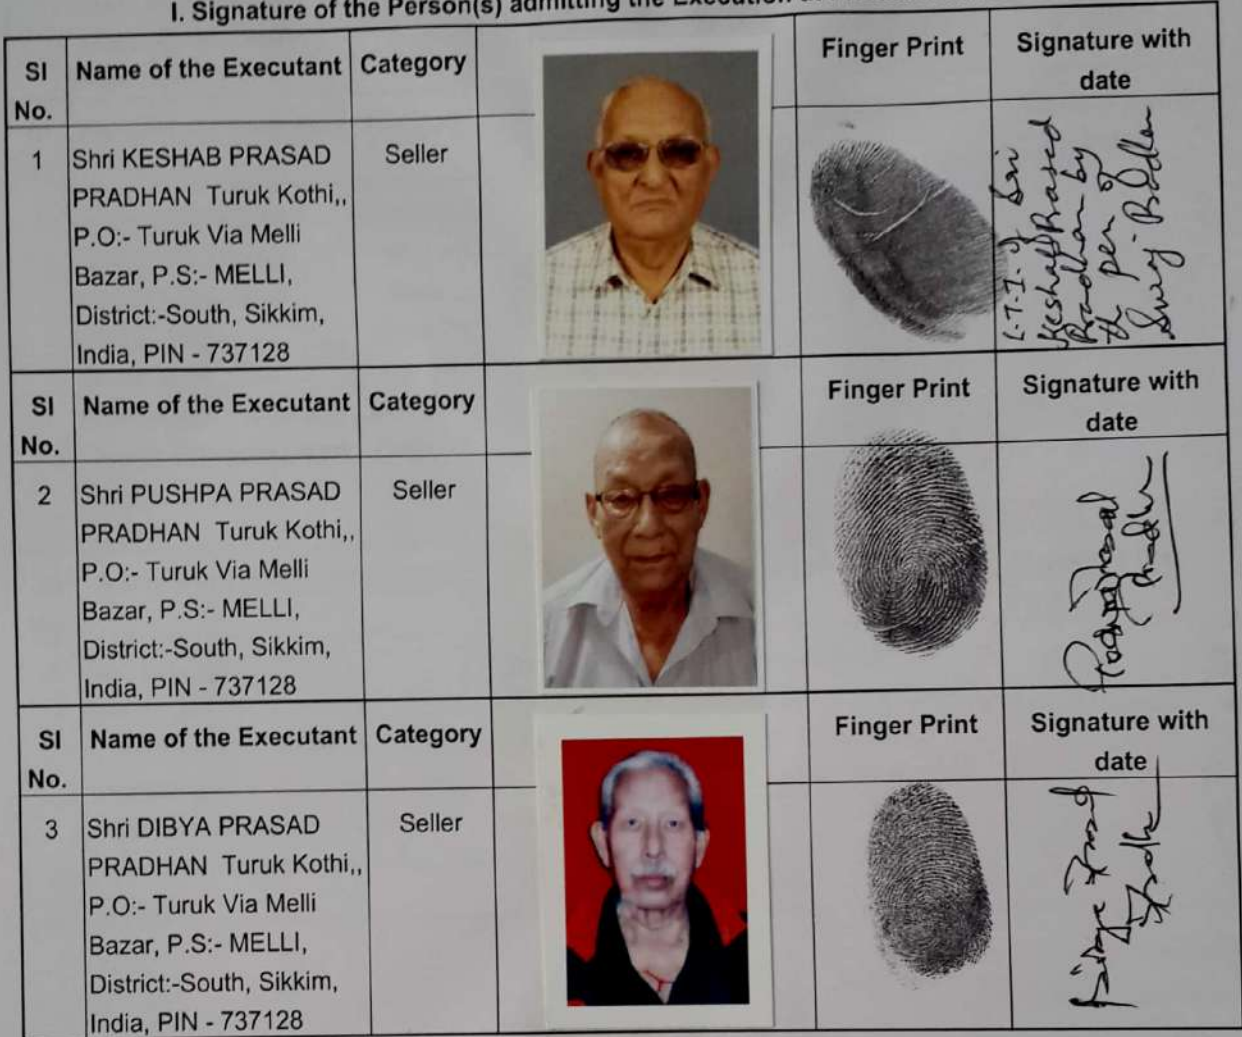 I. Signature of the Person(s) admitting the Execution
SI No. Name of the Executant Category Finger Print Signature with date
1 Shri KESHAB PRASAD Seller
PRADHAN Turuk Kothi,,
P.O:- Turuk Via Melli
Bazar, P.S:- MELLI,
District:-South, Sikkim,
India, PIN - 737128
L.T.I. of Sri
Keshab Prasad
Pradhan by
the pen of
SI No. Name of the Executant Category Finger Print Signature with date
2 Shri PUSHPA PRASAD Seller
PRADHAN Turuk Kothi,,
P.O:- Turuk Via Melli
Bazar, P.S:- MELLI,
District:-South, Sikkim,
India, PIN - 737128
SI No. Name of the Executant Category Finger Print Signature with date
3 Shri DIBYA PRASAD Seller
PRADHAN Turuk Kothi,,
P.O:- Turuk Via Melli
Bazar, P.S:- MELLI,
District:-South, Sikkim,
India, PIN - 737128